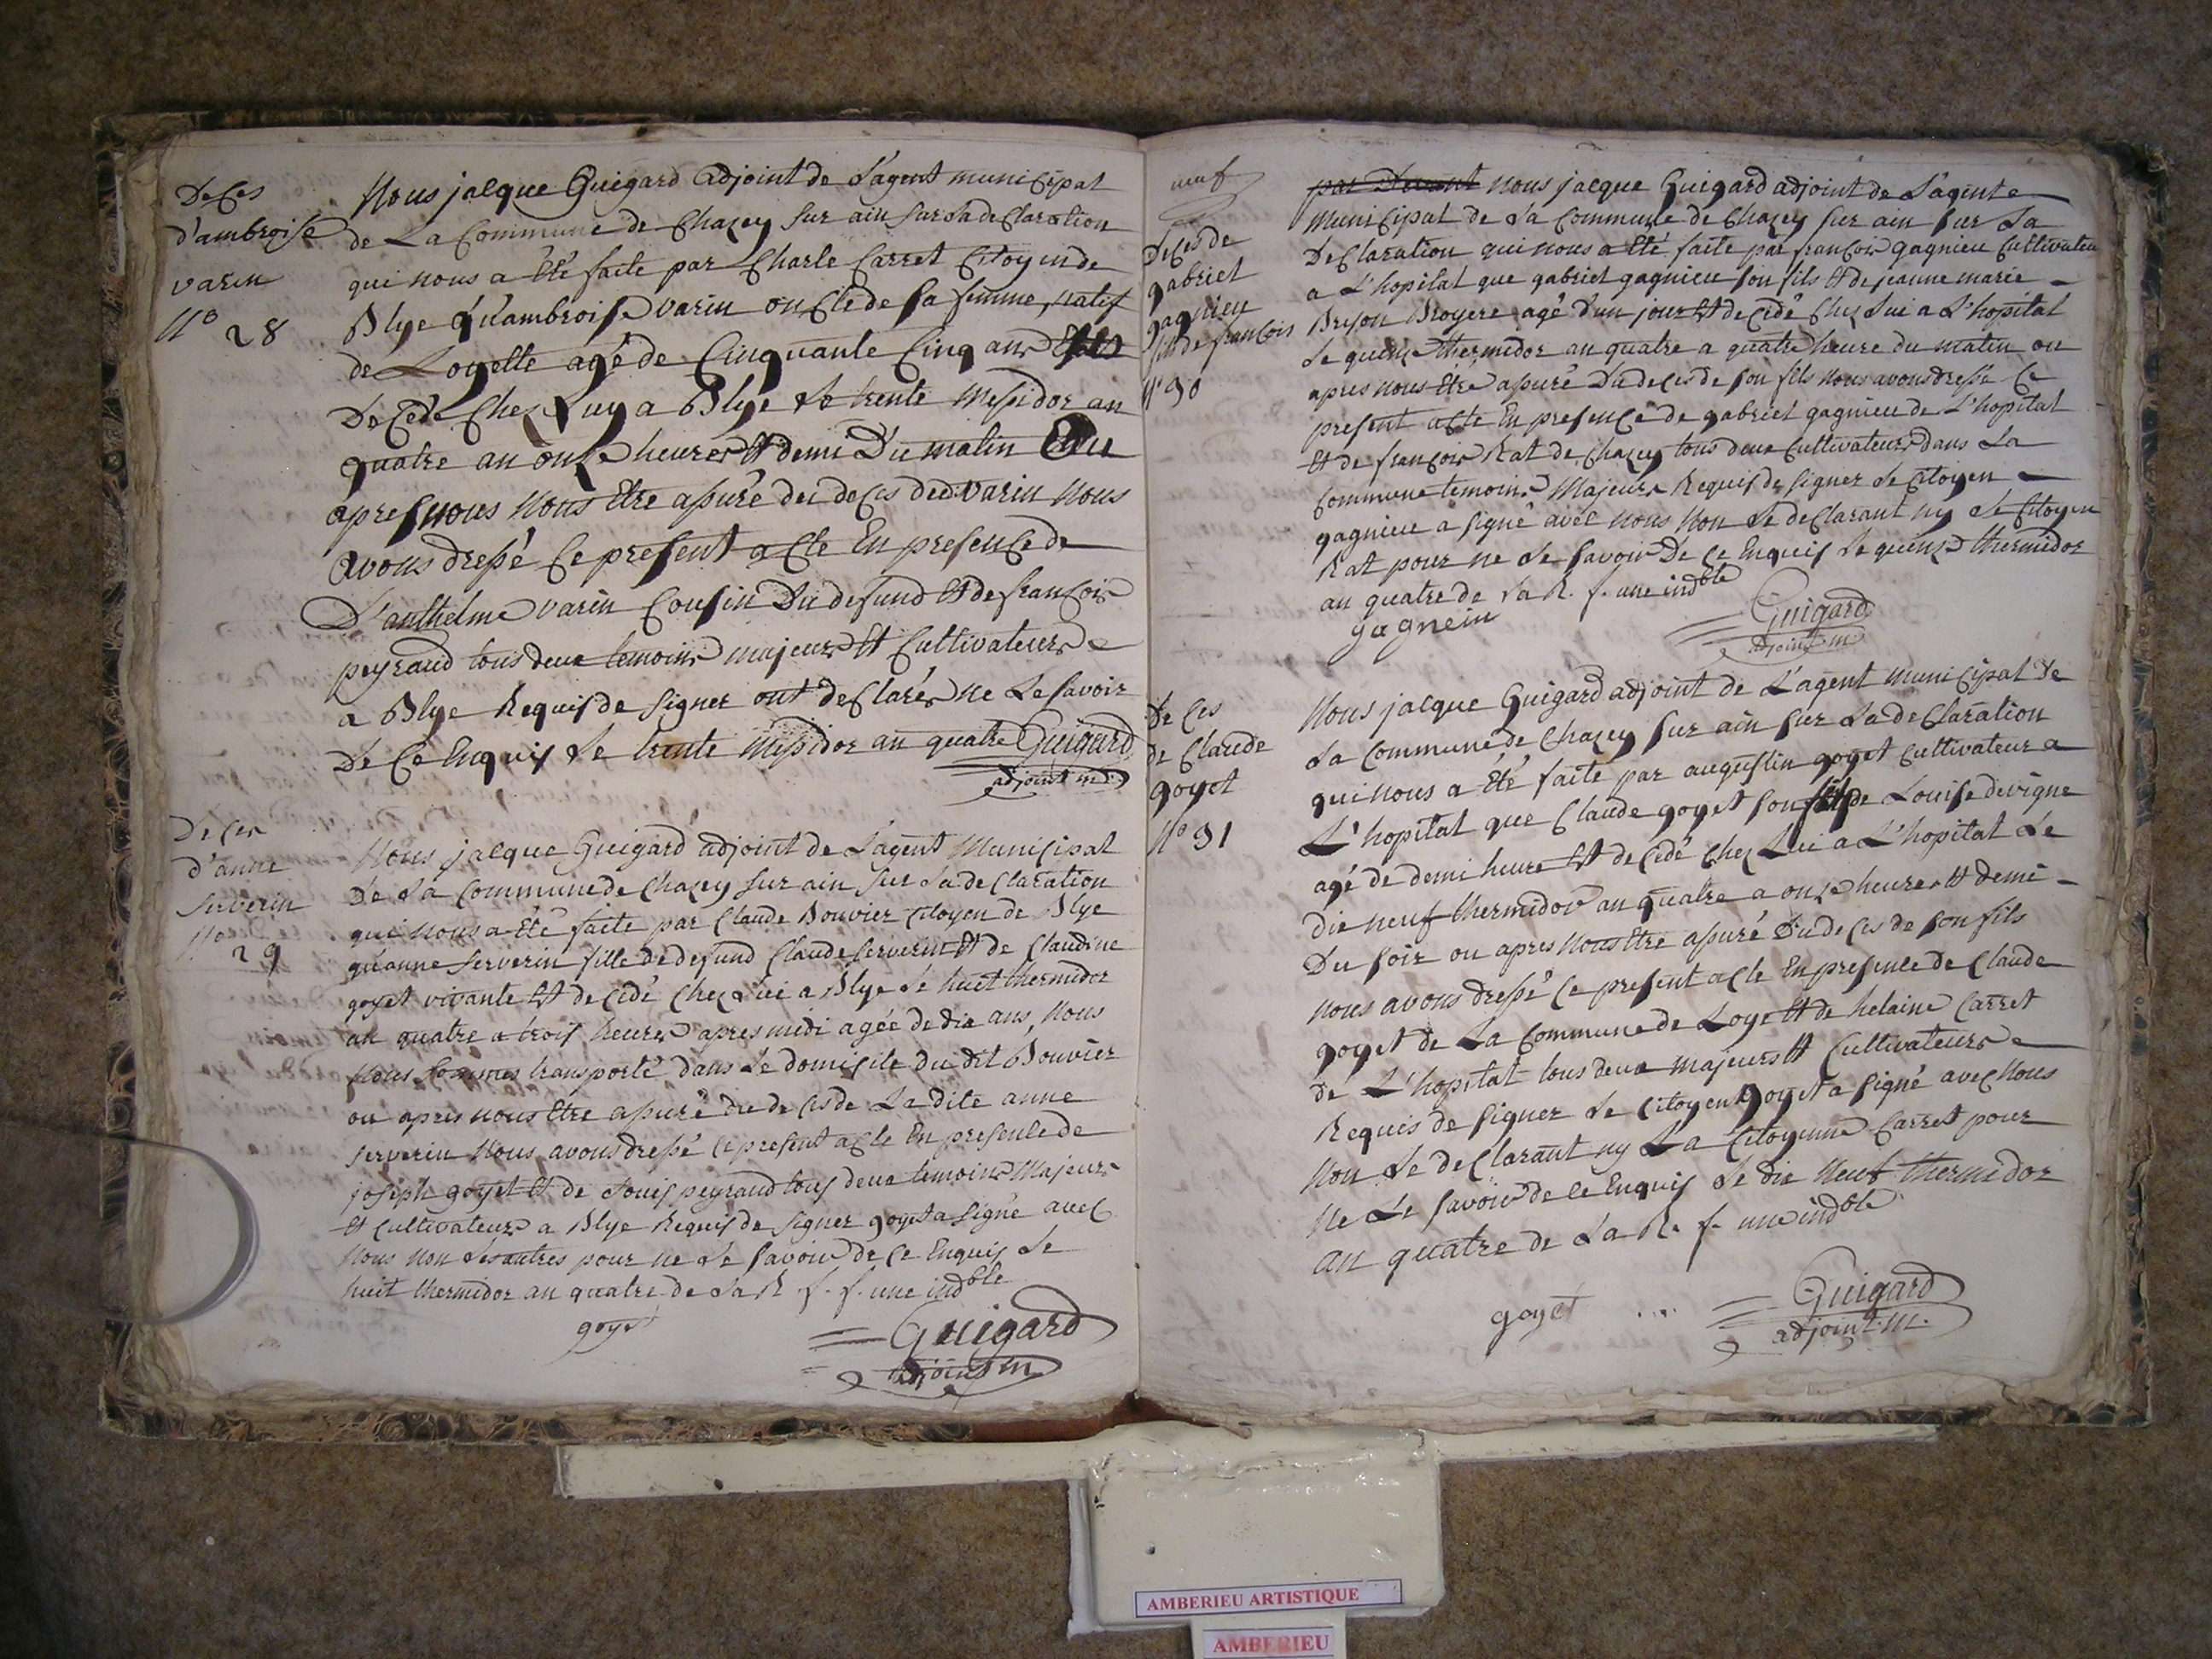 Deces
d'ambroise
varin
N° 28
Nous jacque Guigard adjoint de L'agent municipal
de La Commune de Chazey sur ain sur La declaration
qui nous a été faite par Charle Carret Citoyen de
Blye qu'ambroise varin oncle de sa femme, natif
de Loyette agé de Cinquante Cinq ans Est
Decedé Chez Luy a Blye Le trente Messidor an
quatre an onze heures Et demi Du matin Ou
apres nous Nous Etre assuré du deces dud. varin Nous
avons dressé Ce present acte En presence de
D'anthelme varin Cousin Du defund Et de francois
peyraud tous deux temoins majeurs Et Cultivateurs
a Blye Requis de signer ont declarés ne Le savoir
De Ce Enquis Le trente Messidor an quatre Guigard
adjoint m
Deces
d'anne
serverin
N° 29
Nous jacque Guigard adjoint de L'agent Municipal
De La Commune de Chazey sur ain sur La declaration
qui nous a Eté faite par Claude Bouvier Citoyen de Blye
qu'anne serverin fille de defund Claude serverin Et de Claudine
goyet vivante Est decedé chez Lui a Blye Le huit thermidor
an quatre a trois heures apres midi agée de dix ans, Nous
Nous sommes transporté dans Le domicile du dit Bouvier
ou apres nous Etre assuré du deces de La dite anne
serverin Nous avons dressé Ce present acte En presence de
joseph goyet Et de Louis peyraud tous deux temoins Majeurs
Et Cultivateurs a Blye Requis de signer goyet a signé avec
Nous Non Les autres pour ne Le savoir de Ce Enquis Le
huit thermidor an quatre de La R. f. f. une indble
goyet
Guigard
adjoint m
neuf
Deces de
gabriel
gagnieu
fils de francois
N° 30
par Devant Nous jacque Guigard adjoint de L'agent
Municipal de La Commune de Chazey sur ain sur La
Declaration qui nous a Eté faite par francois gagnieu Cultivateu
a L'hopital que gabriel gagnieu son fils Et de jeanne marie
Broyere agé d'un jour Est decedé Chez Lui a L'hopital
Le quinze thermidor an quatre a quatre heure du matin ou
apres nous Etre assuré Du deces de son fils Nous avons dressé Ce
present acte En presence de gabriel gagnieu de L'hopital
Et de francois Rat de Chazey tous deux Cultivateurs dans La
Commune temoins Majeurs Requis de signer Le Citoyen
gagnieu a signé avec nous Non Le declarant ny Le Citoyen
Rat pour ne Le savoir De Ce Enquis Le quinze thermidor
an quatre de La R. f. une indble
gagnein
Guigard
adjoint m
Deces
de Claude
goyet
N° 31
Nous jacque Guigard adjoint de L'agent Municipal de
La Commune de Chazey sur ain sur La declaration
qui nous a Eté faite par augustin goyet Cultivateur a
L'hopital que Claude goyet son fils de Louise devigne
agé de demi heure Est decedé chez Lui a L'hopital Le
dix neuf thermidor an quatre a onze heures Et demi
Du soir ou apres Nous Etre assuré Du deces de son fils
Nous avons dressé Ce present acte En presence de Claude
goyet de La Commune de Loye Et de helaine Carret
de L'hopital tous deux majeurs Et Cultivateurs
Requis de signer Le Citoyen goyet a signé avec Nous
Non Le declarant ny La Citoyenne Carret pour
Ne Le savoir de Ce Enquis Le dix Neuf thermidor
an quatre de La R. f. une indble
goyet
Guigard
adjoint.m.
AMBERIEU ARTISTIQUE
AMBERIEU